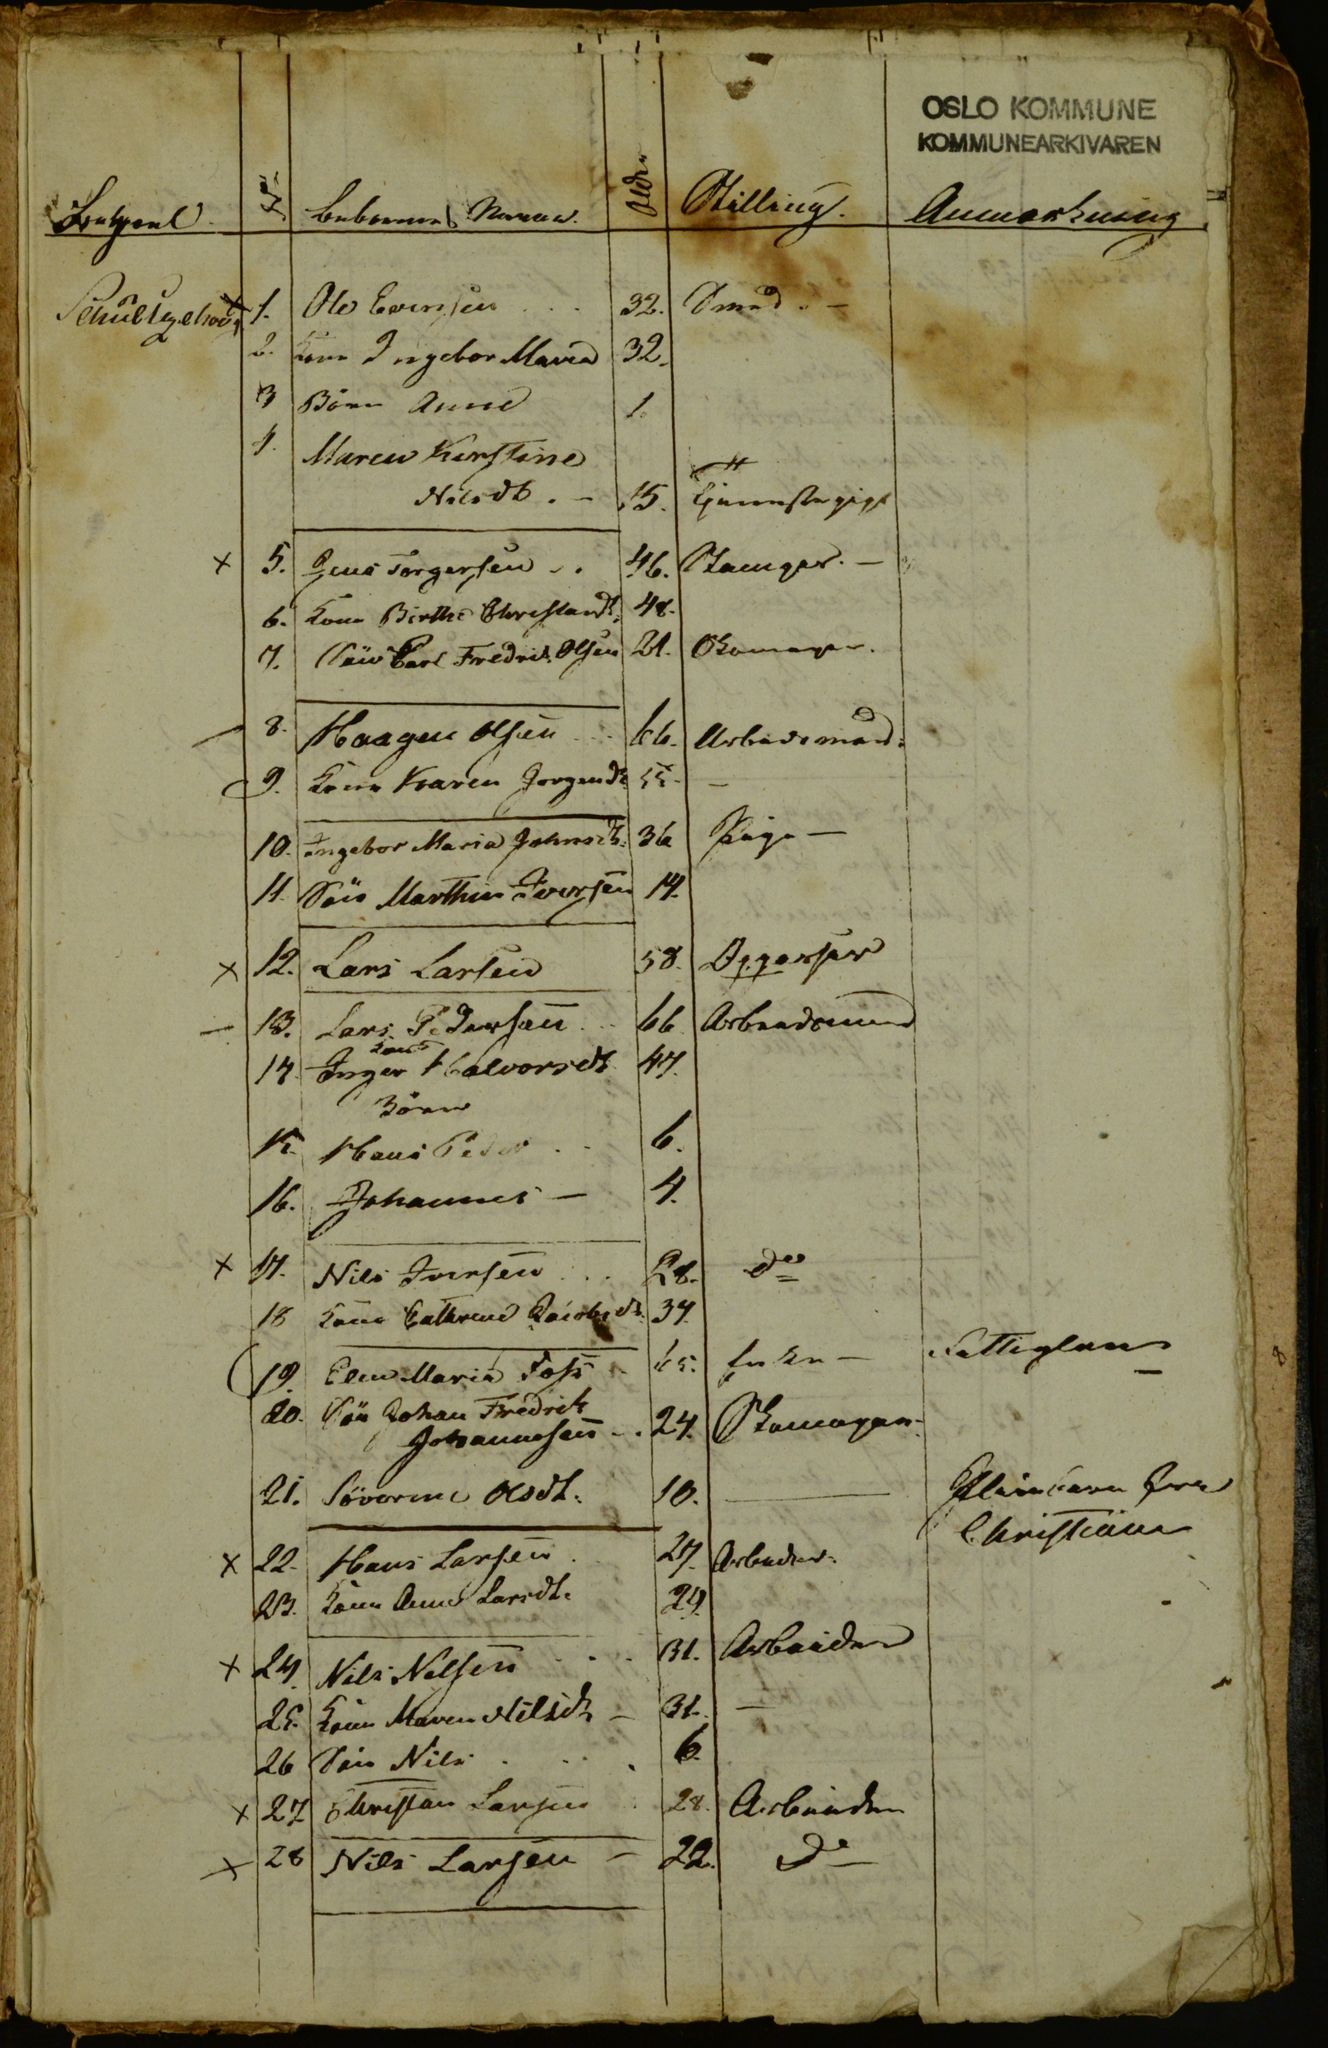 OSLO KOMMUNE
KOMMUNEARKIVAREN
No Beboernes Navne. Alder Stilling. Anmærkning
1. Ole Evensen 32. Smed. -
2. Kone Ingebor Maria 32.
3 Børn Anne 1.
4. Maren Kirstine
Nilsdt. - 15. Tjenestepige
x 5. Jens Torgersen 46. Skomager. -
6. Kone Birthe Christiansdt. 48.
7. Søn Carl Fredrik Olsen 21. Skomager.
8. Haagen Olsen 66. Arbeidsmand.
9. Kone Karen Jorgensdt. 55. -
10. Ingebor Maria Johnsdt. 36 Pige -
11. Søn Marthin Iversen 14.
x 12. Lars Larsen 58. Opparser
- 13. Lars Pedersen 66 Arbeidsmand
Kone
14. Inger Halvorsdt 47.
Børn
15. Hans Peder 6.
16. Johannes - 4.
x 17. Nils Iversen 28. do
18 Kone Cathrine Jacobsdt. 34.
19. Elen Maria Foss 65. Enke - Fattiglem
20. Søn Johan Fredrik
Johannesen - 24. Skomager.
21. Søverine Olsdt. 10. Pleiebarn fra
Christiania
x 22. Hans Larsen 27. Arbeider.
23. Kone Anne Larsdt. 29.
x 24. Nils Nilsen 31. Arbeider
25. Kone Maren Nilsdt - 31. -
26 Søn Nils 6.
x 27 Christian Larsen 28. Arbeider
x 28 Nils Larsen - 22. do